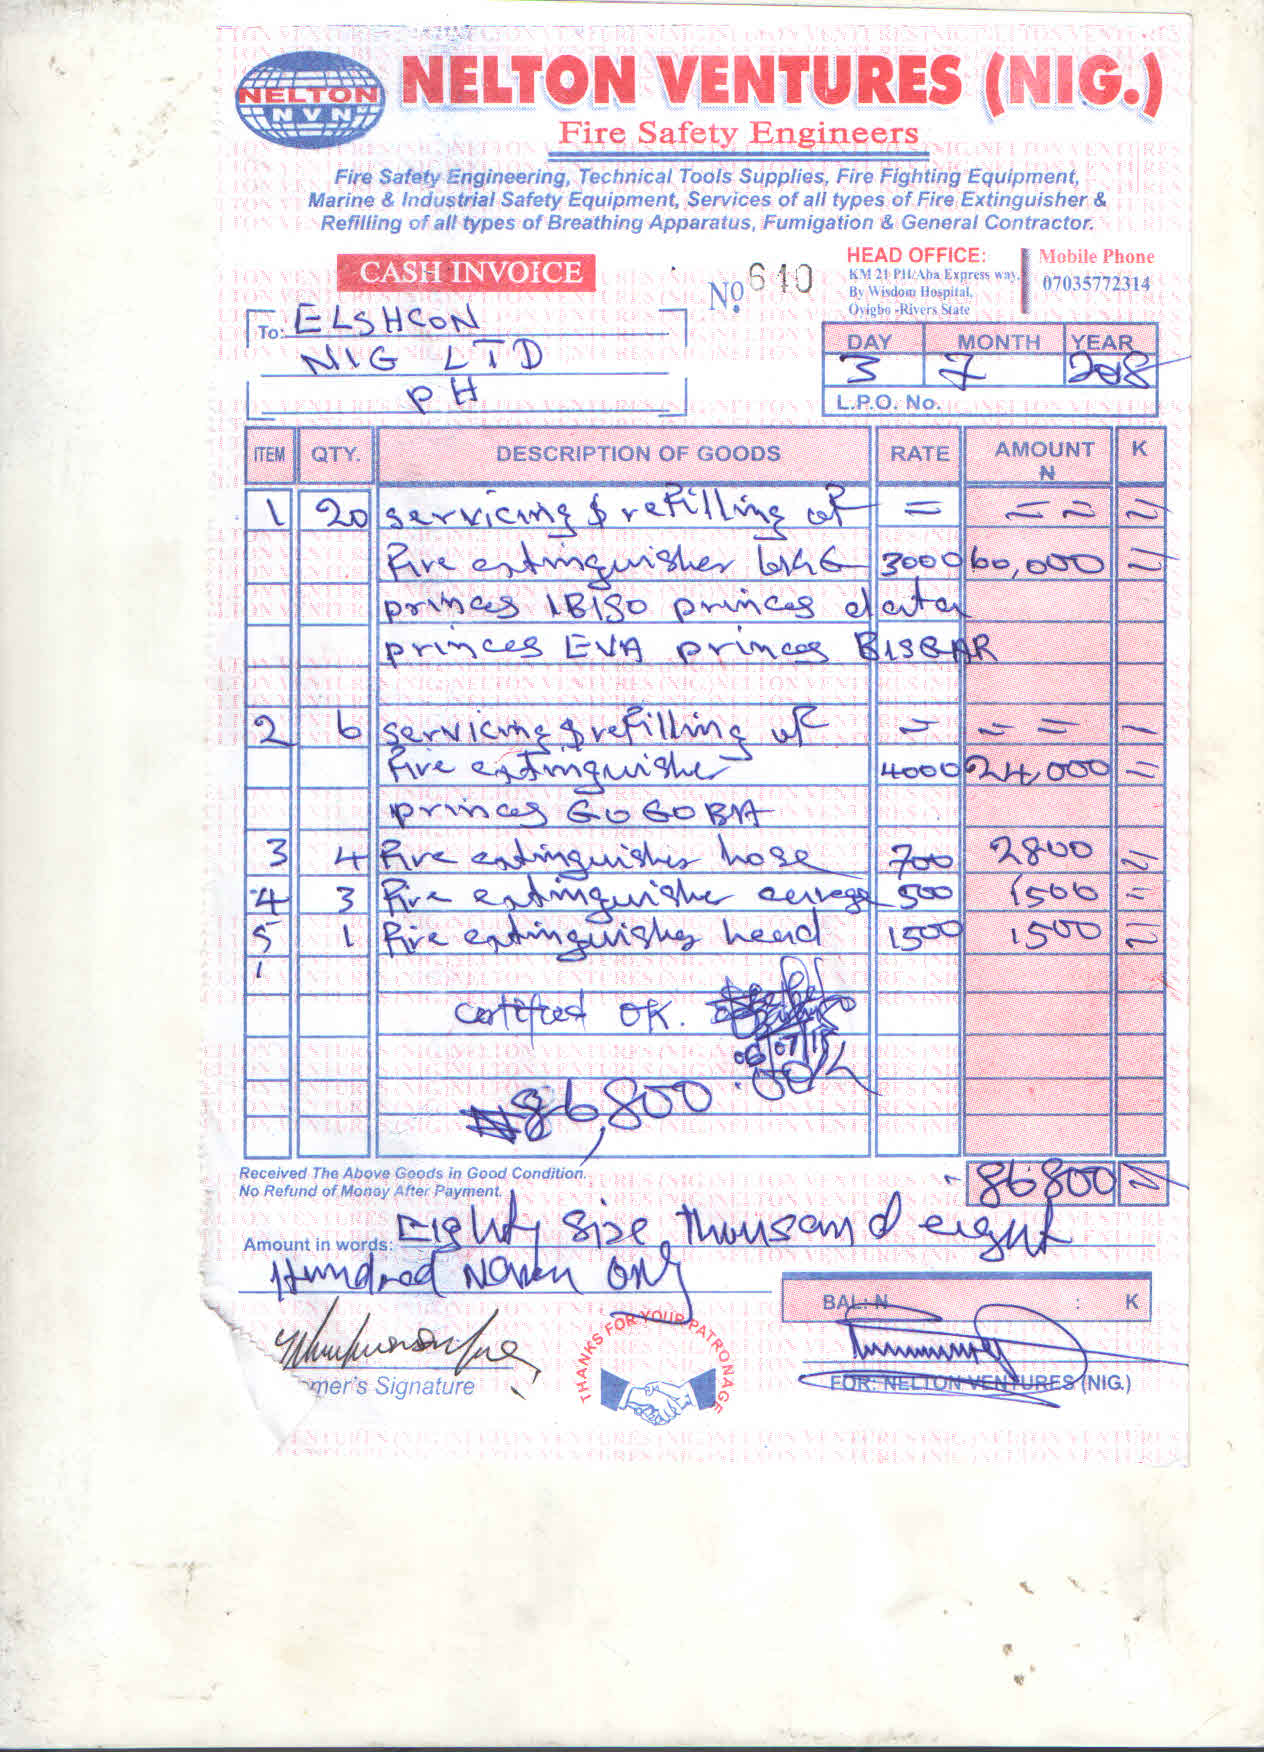 NELTON
NVN
NELTON VENTURES (NIG.)
Fire Safety Engineers
Fire Safety Engineering, Technical Tools Supplies, Fire Fighting Equipment,
Marine & Industrial Safety Equipment, Services of all types of Fire Extinguisher &
Refilling of all types of Breathing Apparatus, Fumigation & General Contractor.
CASH INVOICE
No. 640
HEAD OFFICE:
KM 21 PH/Aba Express way,
By Wisdom Hospital,
Oyigbo -Rivers State
Mobile Phone
07035772314
To: ELSHCON
NIG LTD
PH
DAY MONTH YEAR
3 7 2018
L.P.O. No.
ITEM QTY. DESCRIPTION OF GOODS RATE AMOUNT N K
1 20 servicing & refilling of = = = =
Fire extinguisher 6KG 3000 60,000 =
princes IBISO princes data
princes EVA princes BISGAR
2 6 servicing & refilling of = = = =
Fire extinguisher 4000 24,000 =
princes GOGOBA
3 4 Fire extinguisher hose 700 2800 =
4 3 Fire extinguisher 500 1500 =
5 1 Fire extinguisher head 1500 1500 =
Certified OK.
06/07/18
₦86,800
Received The Above Goods in Good Condition.
No Refund of Money After Payment.
86800 =
Amount in words: Eighty size thousand eight
Hundred Naira only
BAL: N K
THANKS FOR YOUR PATRONAGE
mer's Signature
FOR: NELTON VENTURES (NIG.)